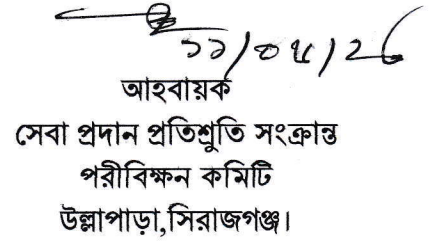 আহবায়ক
সেবা প্রদান প্রতিশ্রুতি সংক্রান্ত
পরীবিক্ষন কমিটি
উল্লাপাড়া,সিরাজগঞ্জ।